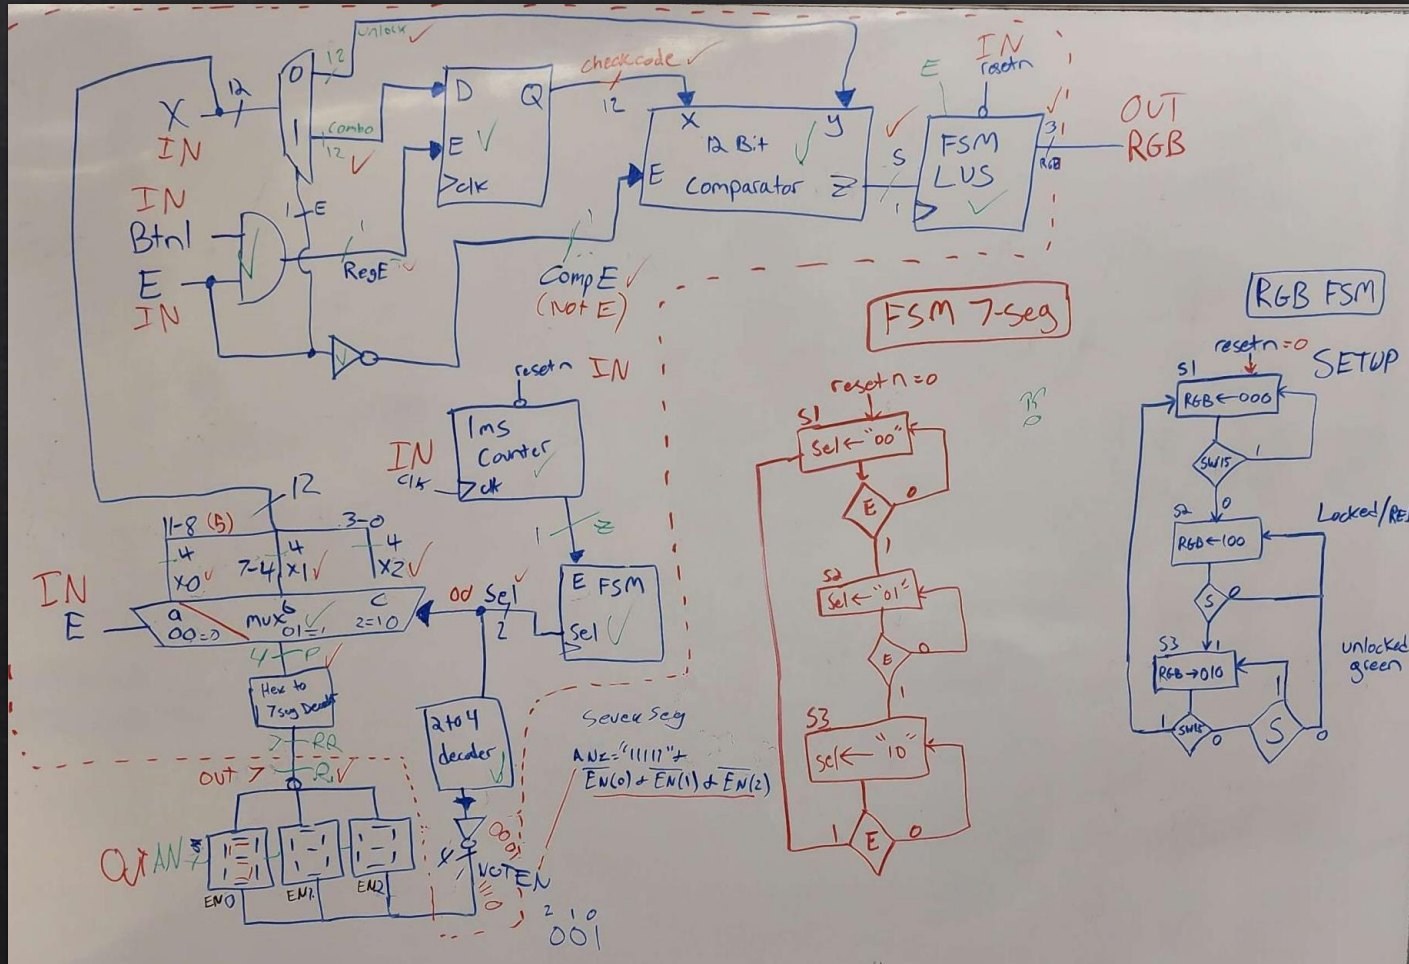 unlock
12
X
12
IN
0
1
combo
12
D
Q
E
clk
checkcode
12
X
Y
12 Bit
Comparator
E
Z
S
1
E
IN
resetn
FSM
LUS
3
RGB
OUT
RGB
IN
Btn1
E
IN
1
E
1
RegE
1
CompE
(Not E)
resetn IN
1ms
Counter
clk
IN
clk
1
Z
E FSM
Sel
Sel
2
12
11-8 (5)
3-0
4
X0
7-4
4
X1
4
X2
IN
E
a
00=0
mux
b
01=1
c
2=10
4
P
Hex to
7seg Decoder
7
RR
OUT 7
R
2 to 4
decoder
NOT EN
Out AN
EN0
EN1
EN2
2 1 0
001
Seven Seg
EN(0) + EN(1) + EN(2)
FSM 7-seg
resetn=0
S1
Sel ← "00"
E
0
1
S2
Sel ← "01"
E
0
1
S3
Sel ← "10"
1
E
0
RGB FSM
resetn=0
SETUP
S1
RGB ← 000
SW15
1
0
S2
RGB ← 100
Locked/RE
S
0
1
S3
RGB → 010
unlocked
green
1
SW15
0
S
1
0